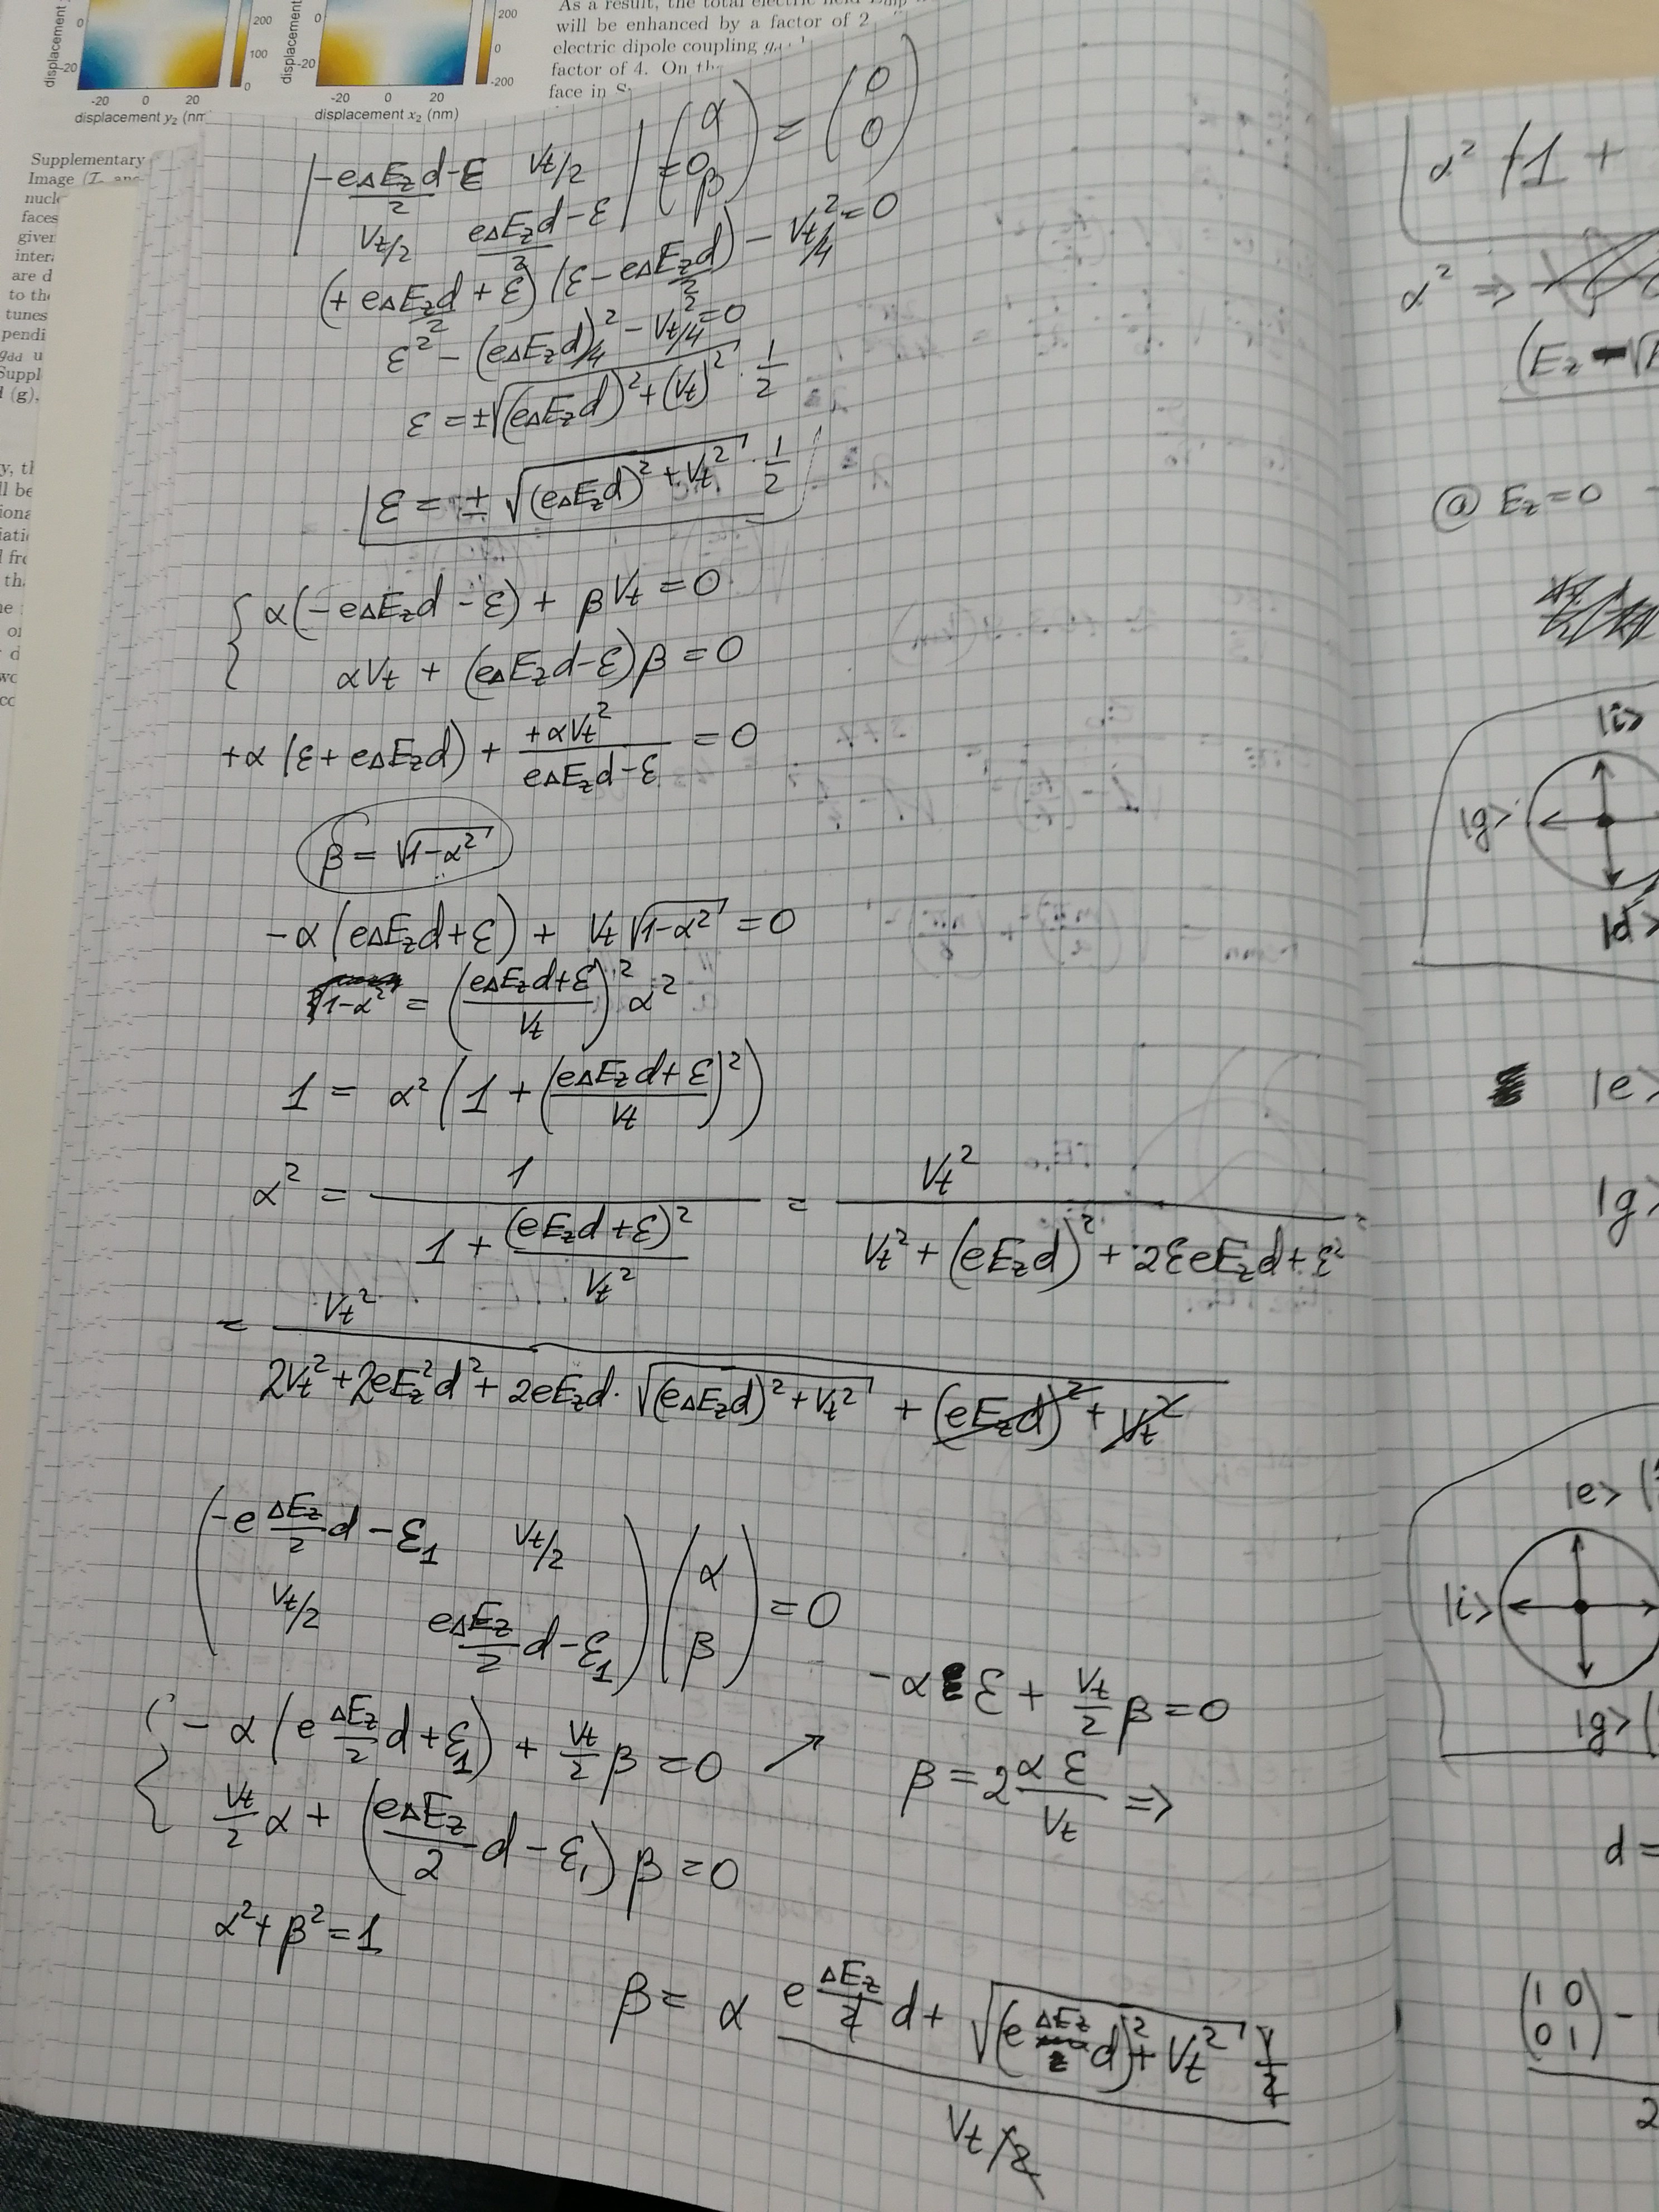 displacement
0
-20
-20 0 20
displacement y₂ (nm
200
100
0
displacement
0
-20
-20 0 20
displacement x₂ (nm)
200
0
-200
As a result, the total electric field
will be enhanced by a factor of 2
electric dipole coupling
factor of 4. On th
face in S
Supplementary
Image (I
nucle
faces
given
inter
are d
to the
tunes
pendi
g_dd u
Suppl
l (g).
| -eΔE_z d/2 - ε   V_t/2 | (α) = (0)
| V_t/2   eΔE_z d/2 - ε | =0 (β)   (0)
(+ eΔE_z d/2 + ε)(ε - eΔE_z d/2) - V_t²/4 = 0
ε² - (eΔE_z d)²/4 - V_t²/4 = 0
ε = ±√((eΔE_z d)² + (V_t)²) · 1/2
ε = ± √((eΔE_z d)² + V_t²) · 1/2
{ α(-eΔE_z d - ε) + βV_t = 0
αV_t + (eΔE_z d - ε)β = 0
+α(ε + eΔE_z d) + +αV_t²/(eΔE_z d - ε) = 0
β = √(1-α²)
-α(eΔE_z d + ε) + V_t √(1-α²) = 0
1-α² = ((eΔE_z d + ε)/V_t)² α²
1 = α² (1 + ((eΔE_z d + ε)/V_t)²)
α² = 1/(1 + (eE_z d + ε)²/V_t²) = V_t²/(V_t² + (eE_z d)² + 2εeE_z d + ε²) =
= V_t²/(2V_t² + 2eE_z²d² + 2eE_z d · √((eΔE_z d)² + V_t²) + (eE_z d)² + V_t²)
(-e ΔE_z/2 d - ε₁   V_t/2) (α)
(V_t/2   eΔE_z/2 d - ε₁) (β) = 0
{ -α(e ΔE_z/2 d + ε₁) + V_t/2 β = 0 ↗
V_t/2 α + (eΔE_z/2 d - ε₁)β = 0
α² + β² = 1
-αε + V_t/2 β = 0
β = 2 αε/V_t ⇒
β = α (e ΔE_z/2 d + √((e ΔE_z d)² + V_t²) 1/2)/(V_t/2)
α² (1 +
α² ⇒
(E_z - √
@ E_z = 0
|i>
|g>
|d>
|e>
|g>
|e> (
|i>
|g> (
d =
(1 0)
(0 1) -
2